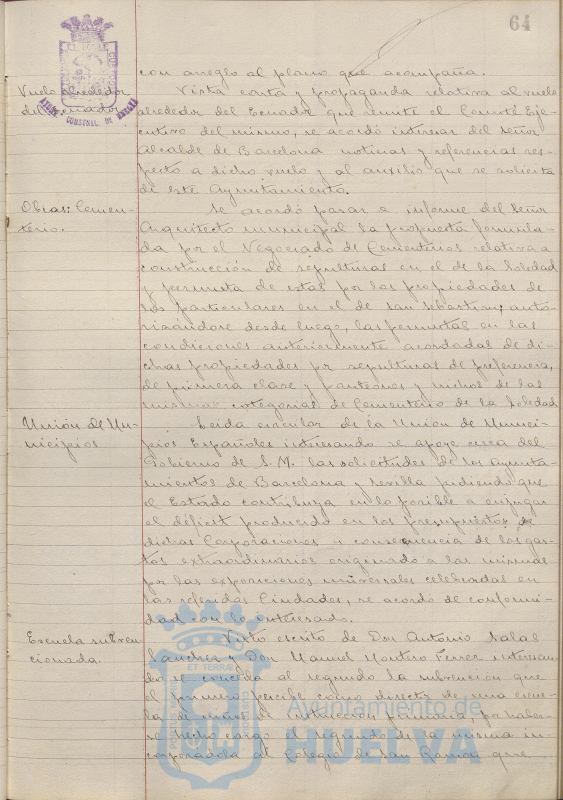 64
con arreglo al plano que acompaña.
Vuelo alrededor
del Ecuador
Vista carta y propaganda relativa al vuelo
alrededor del Ecuador que remite el Comité Eje-
cutivo del mismo, se acordó interesar del Señor
Alcalde de Barcelona noticias y referencias res-
pecto a dicho vuelo y al auxilio que se solicita
de este Ayuntamiento.
Obras: Cemen-
terio.
Se acordó pasar a informe del Señor
Arquitecto municipal la propuesta formula-
da por el Negociado de Cementerios relativa a
construcción de sepulturas en el de la Soledad
y permuta de estas por las propiedades de
los particulares en el de San Sebastian; auto-
rizándose desde luego, las permutas en las
condiciones anteriormente acordadas de di-
chas propiedades por sepulturas de preferencia,
de primera clase y panteones y nichos de las
mismas categorias de Cementerio de la Soledad
Unión de Mu-
nicipios
Leida circular de la Unión de Munici-
pios Españoles interesando se apoye cerca del
Gobierno de S.M. las solicitudes de los Ayunta-
mientos de Barcelona y Sevilla pidiendo que
el Estado contribuya en lo posible a enjugar
el déficit producido en los presupuestos de
dichas Corporaciones a consecuencia de los gas-
tos extraordinarios originado a las mismas
por las exposiciones universales celebradas en
las referidas Ciudades, se acordo de conformi-
dad con lo interesado.
Escuela subven-
cionada.
Visto escrito de Don Antonio
Sanchez y Don Manuel Montero Ferrer interesan-
do se conceda al segundo la subvención que
el primero percibe como director de una escue-
la de niños de instrucción primaria, por haber-
se hecho cargo el segundo de la misma in-
corporandola al Colegio de San Ramon que
Ayuntamiento de
HUELVA